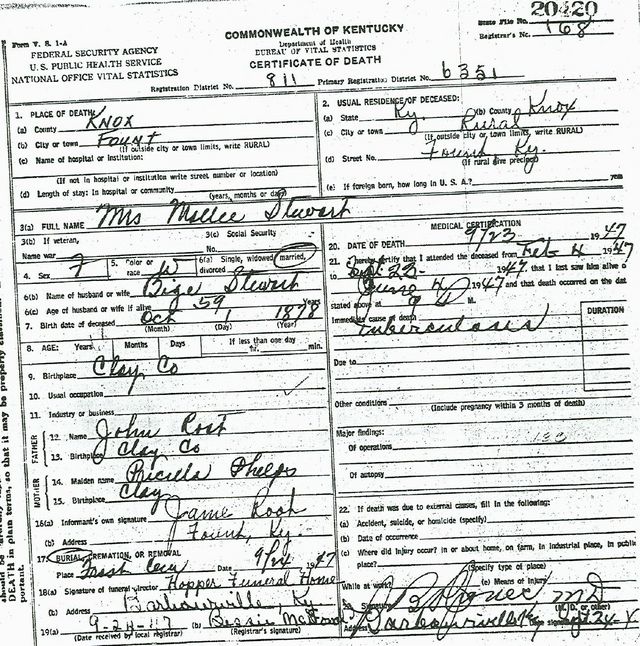 20420
State File No. 168
Registrar's No.
Form V. S. 1-A
COMMONWEALTH OF KENTUCKY
FEDERAL SECURITY AGENCY
U. S. PUBLIC HEALTH SERVICE
NATIONAL OFFICE VITAL STATISTICS
Department of Health
BUREAU OF VITAL STATISTICS
CERTIFICATE OF DEATH
Registration District No. 811 Primary Registration District No. 6351
1. PLACE OF DEATH:
(a) County Knox
(b) City or town Fount
(If outside city or town limits, write RURAL)
(c) Name of hospital or institution:
(If not in hospital or institution write street number or location)
(d) Length of stay: In hospital or community
(years, months or days)
2. USUAL RESIDENCE OF DECEASED:
(a) State Ky. (b) County Knox
(c) City or town Rural
(If outside city or town limits, write RURAL)
(d) Street No. Fount Ky.
(If rural give precinct)
(e) If foreign born, how long in U. S. A.? years
3(a) FULL NAME Mrs Mollie Stewart
3(b) If veteran,
Name war
3(c) Social Security
No.
4. Sex F 5. Color or race W 6(a) Single, widowed, married, divorced
6(b) Name of husband or wife Bige Stewart
6(c) Age of husband or wife if alive 59 Years
7. Birth date of deceased Oct 1 1878
(Month) (Day) (Year)
8. AGE: Years Months Days If less than one day
hr. min.
9. Birthplace Clay Co
10. Usual occupation
11. Industry or business
FATHER
12. Name John
13. Birthplace Clay Co
MOTHER
14. Maiden name Pricilla Phelps
15. Birthplace Clay
16(a) Informant's own signature
(b) Address Fount, Ky.
17. BURIAL, CREMATION, OR REMOVAL
Place Date 9/24 1947
18(a) Signature of funeral director Hopper Funeral Home
(b) Address Barbourville, Ky.
19(a) 9-24-47 (b) Bessie
(Date received by local registrar) (Registrar's signature)
MEDICAL CERTIFICATION
20. DATE OF DEATH 9/23 1947
21. I hereby certify that I attended the deceased from Feb 4 1947
to Sept 22 1947, that I last saw him alive o
June 4 1947 and that death occurred on the dat
stated above at M.
Immediate cause of death DURATION
Tuberculosis
Due to
Other conditions
(Include pregnancy within 3 months of death)
Major findings:
Of operations
Of autopsy
22. If death was due to external causes, fill in the following:
(a) Accident, suicide, or homicide (specify)
(b) Date of occurrence
(c) Where did injury occur? In or about home, on farm, in industrial place, in public
place?
(Specify type of place)
While at work? (e) Means of injury
Signature M D
(M. D. or other)
Address Barbourville Ky Date signed Sept 24-4
DEATH in plain terms, so that it may be properly
portant.